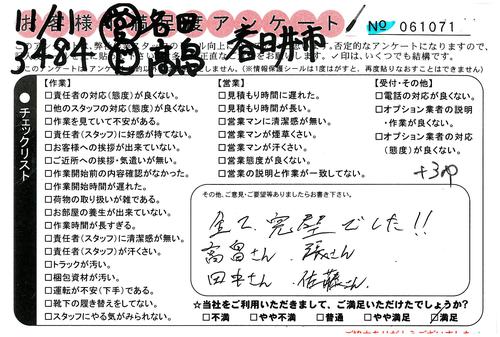 お客様満足度アンケート
№ 061071
11/11
3484
春日井市
このアンケートは
(※情報保護シールは1度はがすと、再度貼りなおすことはできません)
チェックリスト
【作業】
□責任者の対応(態度)が良くない。
□他のスタッフの対応(態度)が良くない。
□作業を見ていて不安がある。
□責任者(スタッフ)に好感が持てない。
□お客様への挨拶が出来ていない。
□ご近所への挨拶・気遣いが無い。
□作業開始前の内容確認がなかった。
□作業開始時間が遅れた。
□荷物の取り扱いが雑である。
□お部屋の養生が出来ていない。
□作業時間が長すぎる。
□責任者(スタッフ)に清潔感が無い。
□責任者(スタッフ)が汗くさい。
□トラックが汚い。
□梱包資材が汚い。
□運転が不安(下手)である。
□靴下の履き替えをしてない。
□スタッフにやる気がみられない。
【営業】
□見積もり時間に遅れた。
□見積もり時間が長い。
□営業マンに清潔感が無い。
□営業マンが煙草くさい。
□営業マンが汗くさい。
□営業態度が良くない。
□営業の説明と作業が一致してない。
【受付・その他】
□電話の対応が良くない。
□オプション業者の説明
・作業が良くない。
□オプション業者の対応
(態度)が良くない。
その他、ご意見・ご要望等ありましたらお書き下さい。
全て完璧でした!!
高畠さん
田中さん 佐藤さん
☆当社をご利用いただきまして、ご満足いただけたでしょうか?
□不満 □やや不満 □普通 □やや満足 ☑満足